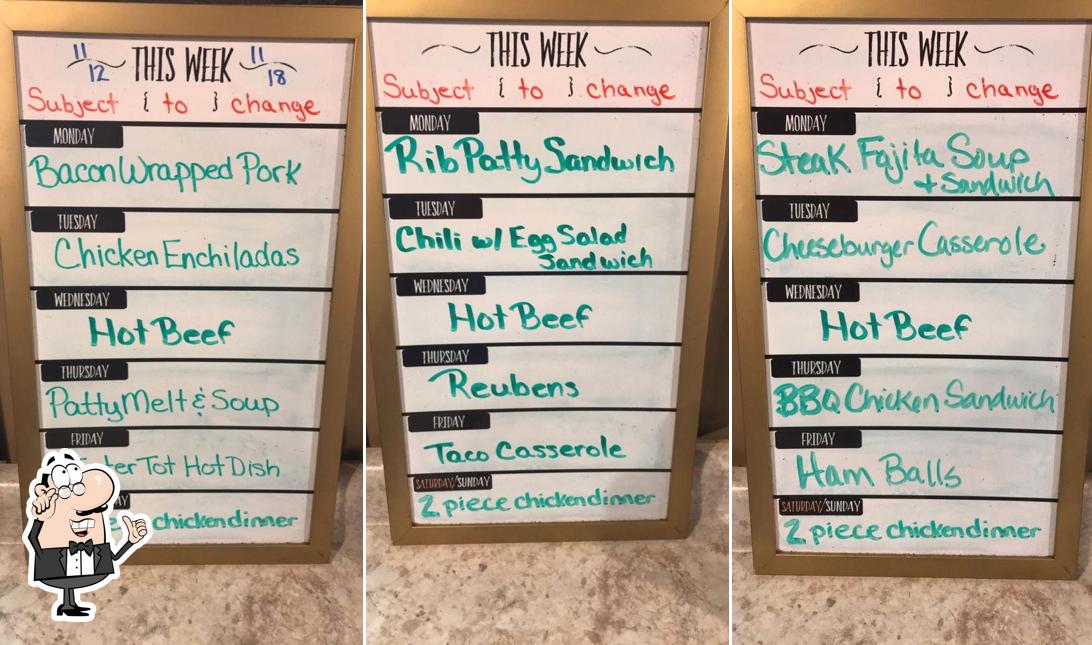 11 THIS WEEK 11
12 18
Subject { to } change
MONDAY
Bacon Wrapped Pork
TUESDAY
Chicken Enchiladas
WEDNESDAY
Hot Beef
THURSDAY
Patty Melt & Soup
FRIDAY
Tot Hot Dish
chicken dinner
THIS WEEK
Subject { to } change
MONDAY
Rib Patty Sandwich
TUESDAY
Chili w/ Egg Salad
Sandwich
WEDNESDAY
Hot Beef
THURSDAY
Reubens
FRIDAY
Taco Casserole
SATURDAY/SUNDAY
2 piece chicken dinner
THIS WEEK
Subject { to } change
MONDAY
Steak Fajita Soup
+ Sandwich
TUESDAY
Cheeseburger Casserole
WEDNESDAY
Hot Beef
THURSDAY
BBQ Chicken Sandwich
FRIDAY
Ham Balls
SATURDAY/SUNDAY
2 piece chicken dinner